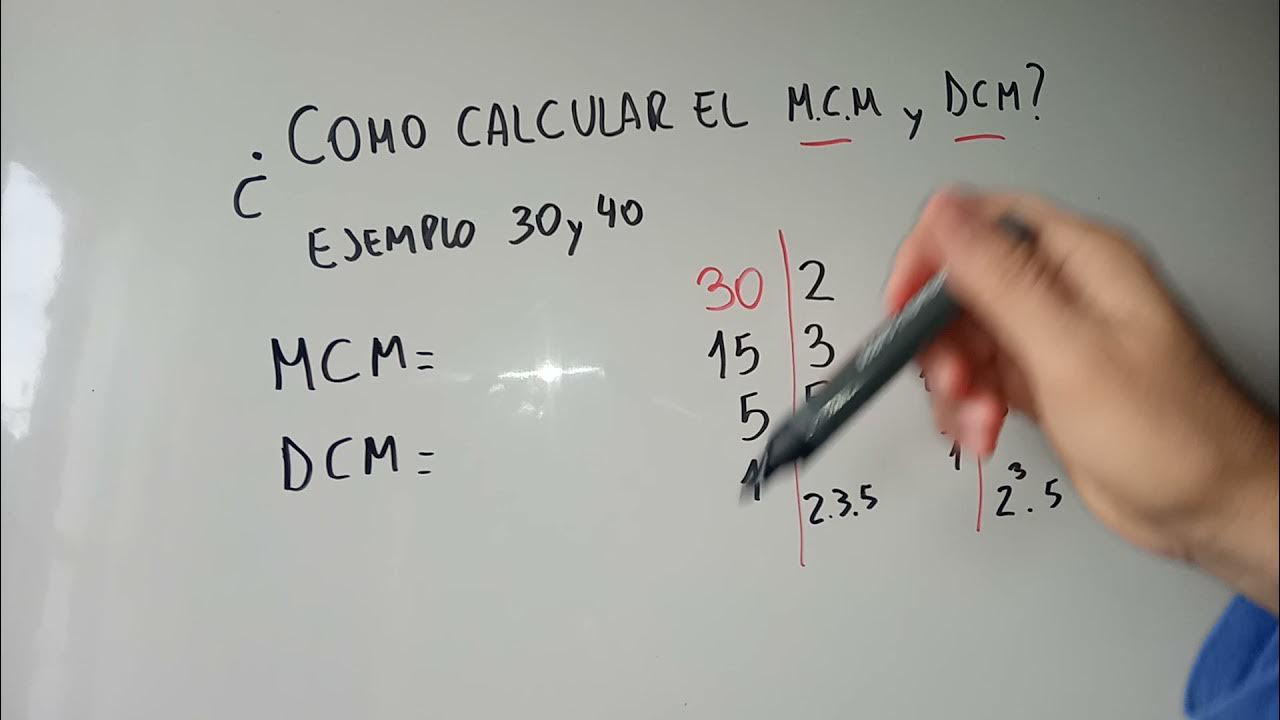 ¿COMO CALCULAR EL M.C.M y DCM?
EJEMPLO 30 y 40
MCM=
DCM=
30 2
15 3
5 5
1
2.3.5
1
2³.5